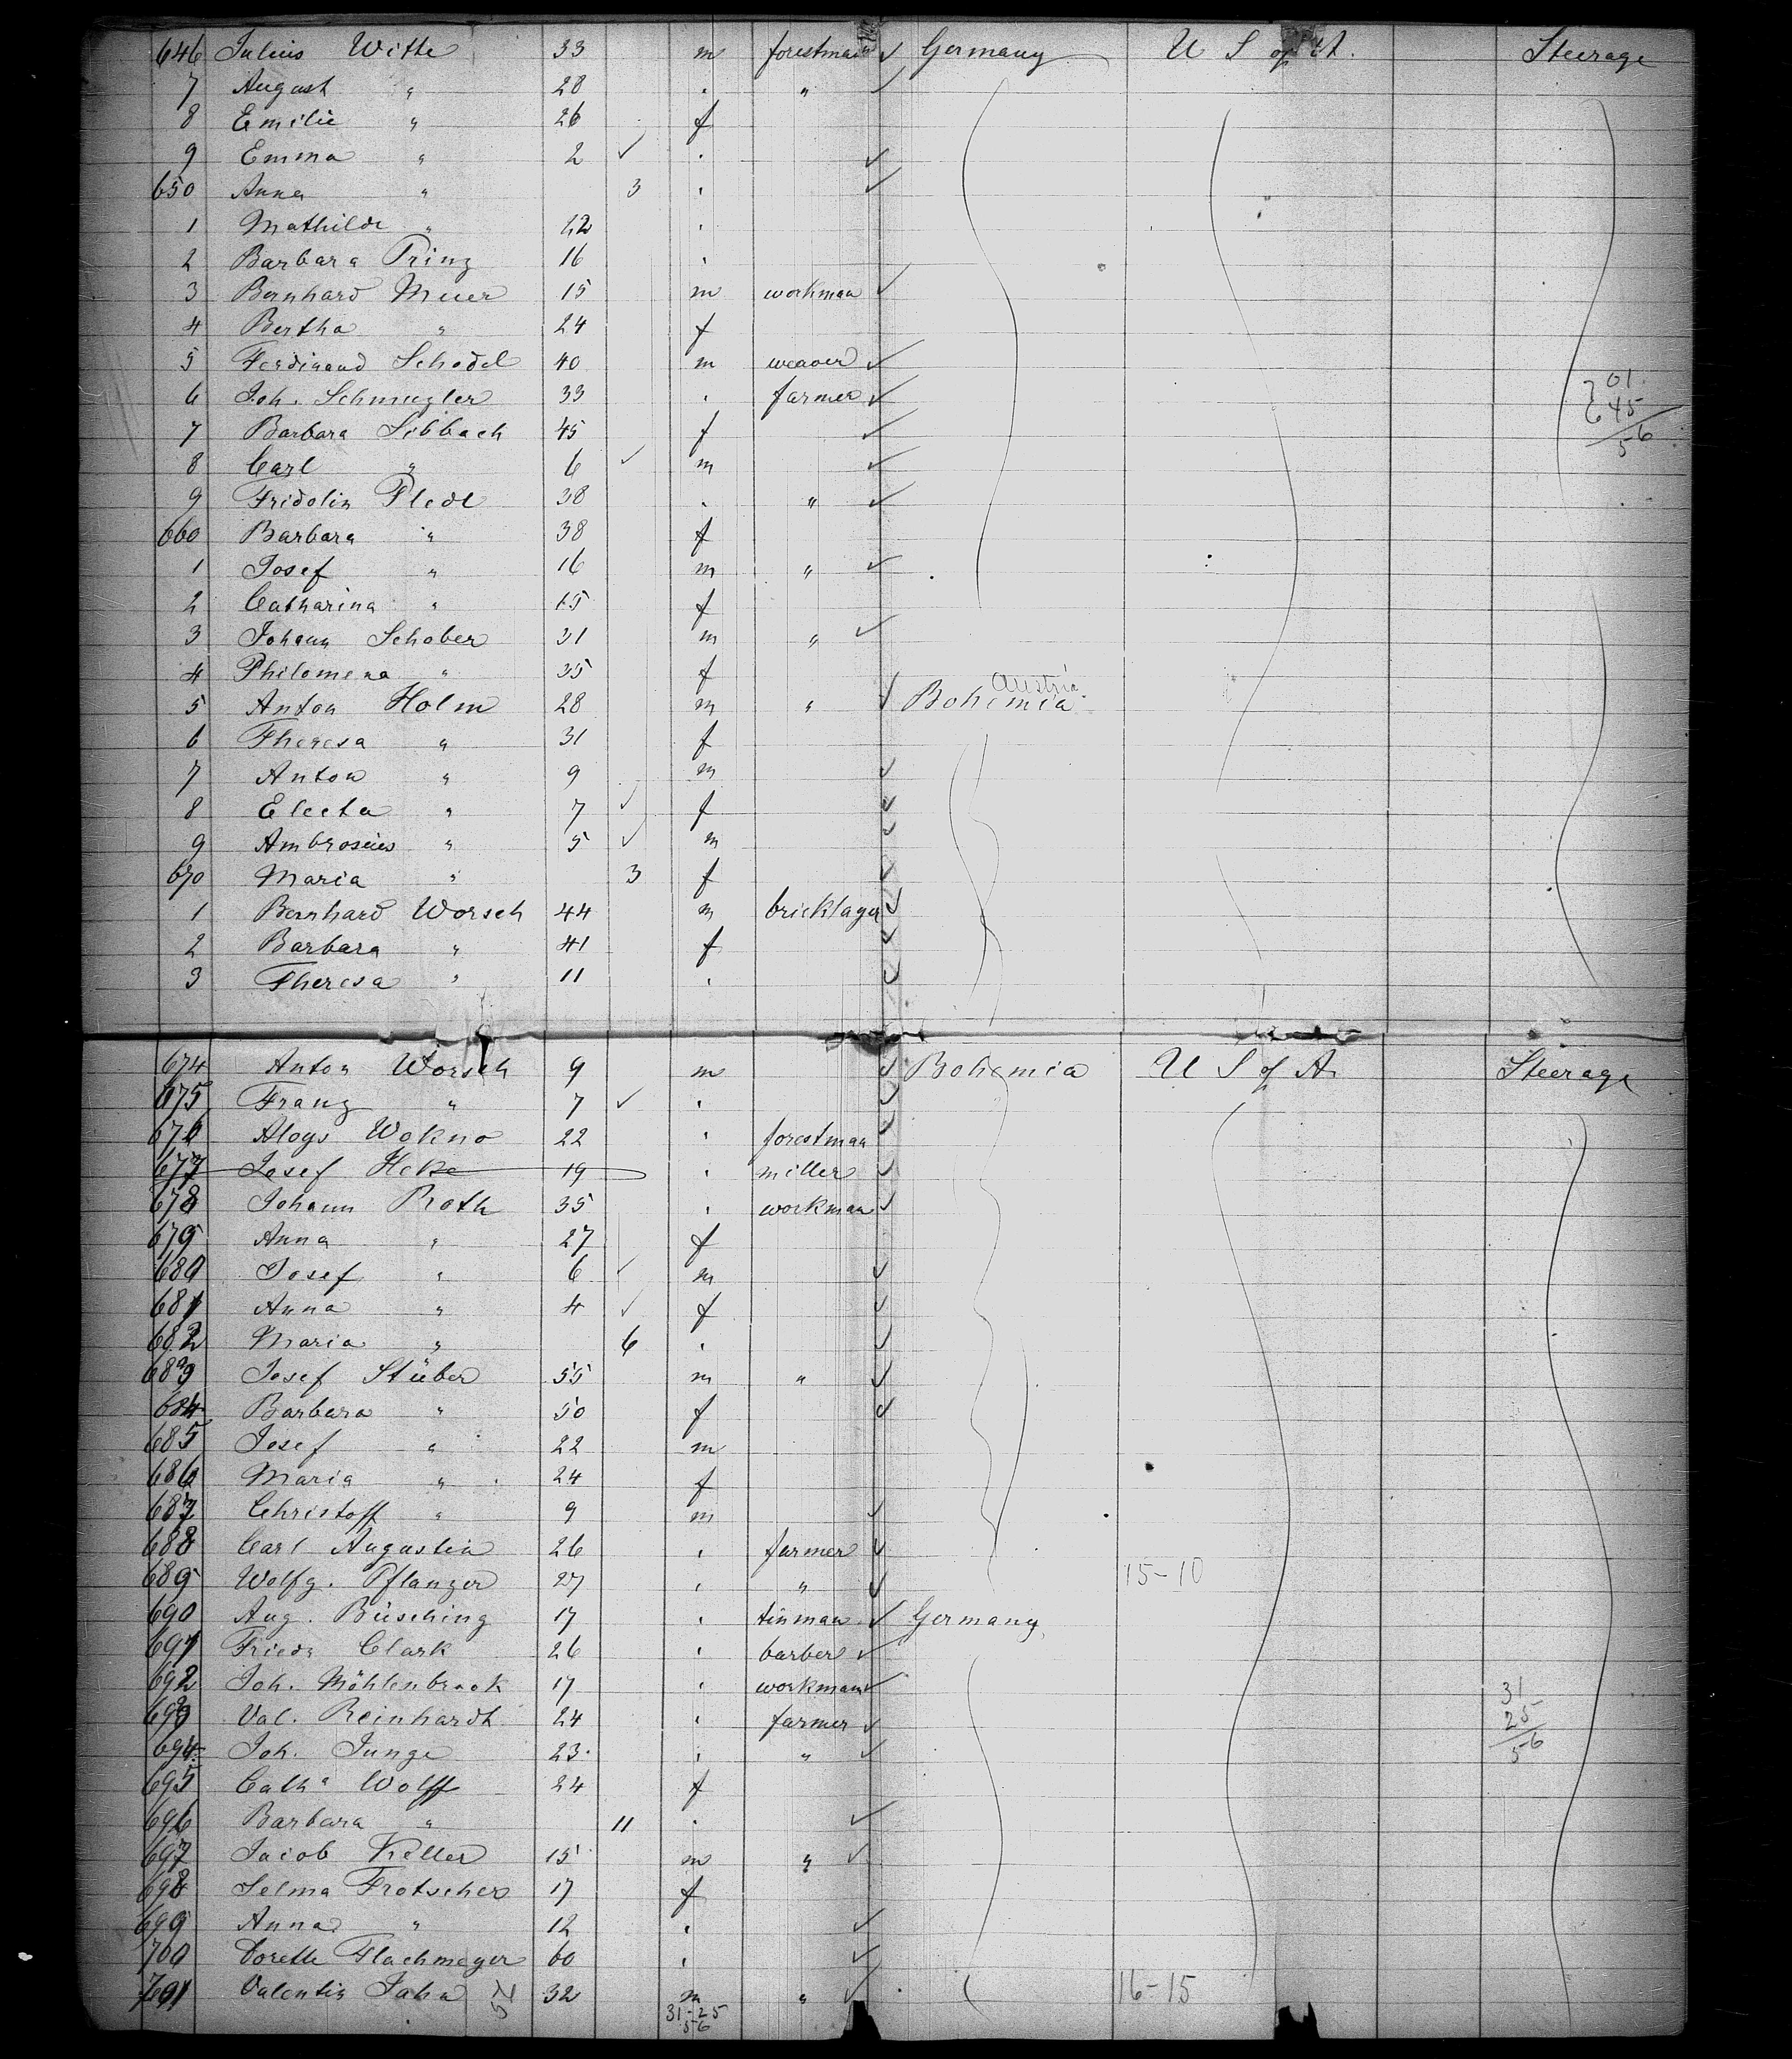 646 Julius Witte 33 m forestman ✓ Germany U S of A. Steerage
7 August " 28 . " ✓
8 Emilie " 26 f
9 Emma " 2 ✓ . ✓
650 Anna " 3 . ✓
1 Mathilde " 22 .
2 Barbara Prinz 16 .
3 Bernhard Meier 15 m workman ✓
4 Bertha " 24 f
5 Ferdinand Schodel 40 m weaver ✓
6 Joh. Schmugler 33 . farmer ✓ 01.
7 Barbara Libbach 45 f ✓ 45
8 Carl " 6 ✓ m ✓ 56
9 Fridolin Pledl 38 . " ✓
660 Barbara " 38 f
1 Josef " 16 m " ✓
2 Catharina " 15 f
3 Johann Schober 31 m " ✓
4 Philomena " 35 f
Austria
5 Anton Holm 28 m " ✓ Bohemia
6 Theresa " 31 f
7 Anton " 9 m ✓
8 Electa " 7 ✓ f ✓
9 Ambrosius " 5 ✓ m ✓
670 Maria " 3 f ✓
1 Bernhard Worsch 44 m bricklayer ✓
2 Barbara " 41 f ✓
3 Theresa " 11 . ✓
674 Anton Worsch 9 m ✓ Bohemia U S of A. Steerage
675 Franz " 7 ✓ . ✓
676 Aloys Wokno 22 . forestman ✓
677 Josef Heke 19 . miller ✓
678 Johann Roth 35 . workman ✓
679 Anna " 27 f
680 Josef " 6 ✓ m ✓
681 Anna " 4 ✓ f ✓
682 Maria " 6 . ✓
683 Josef Stüber 55 m " ✓
684 Barbara " 50 f ✓
685 Josef " 22 m
686 Maria " 24 f
687 Christoff " 9 m ✓
688 Carl Augustin 26 . farmer ✓
689 Wolfg. Pflanzer 27 . " ✓ 15-10
690 Aug. Büsching 17 . tinman ✓ Germany
691 Friedr Clark 26 . barber ✓
692 Joh. Möhlenbrock 17 . workman ✓ 31
693 Val. Reinhardt 24 . farmer ✓ 25
694 Joh. Junge 23 . " ✓ 56
695 Catha Wolff 24 f
696 Barbara " 11 . ✓
697 Jacob Keller 15 m " ✓
698 Selma Frotscher 17 f
699 Anna " 12 . ✓
700 Dorette Flachmeyer 60 . ✓
701 Valentin Jahn 32 m " ✓ 16-15
31-25
56